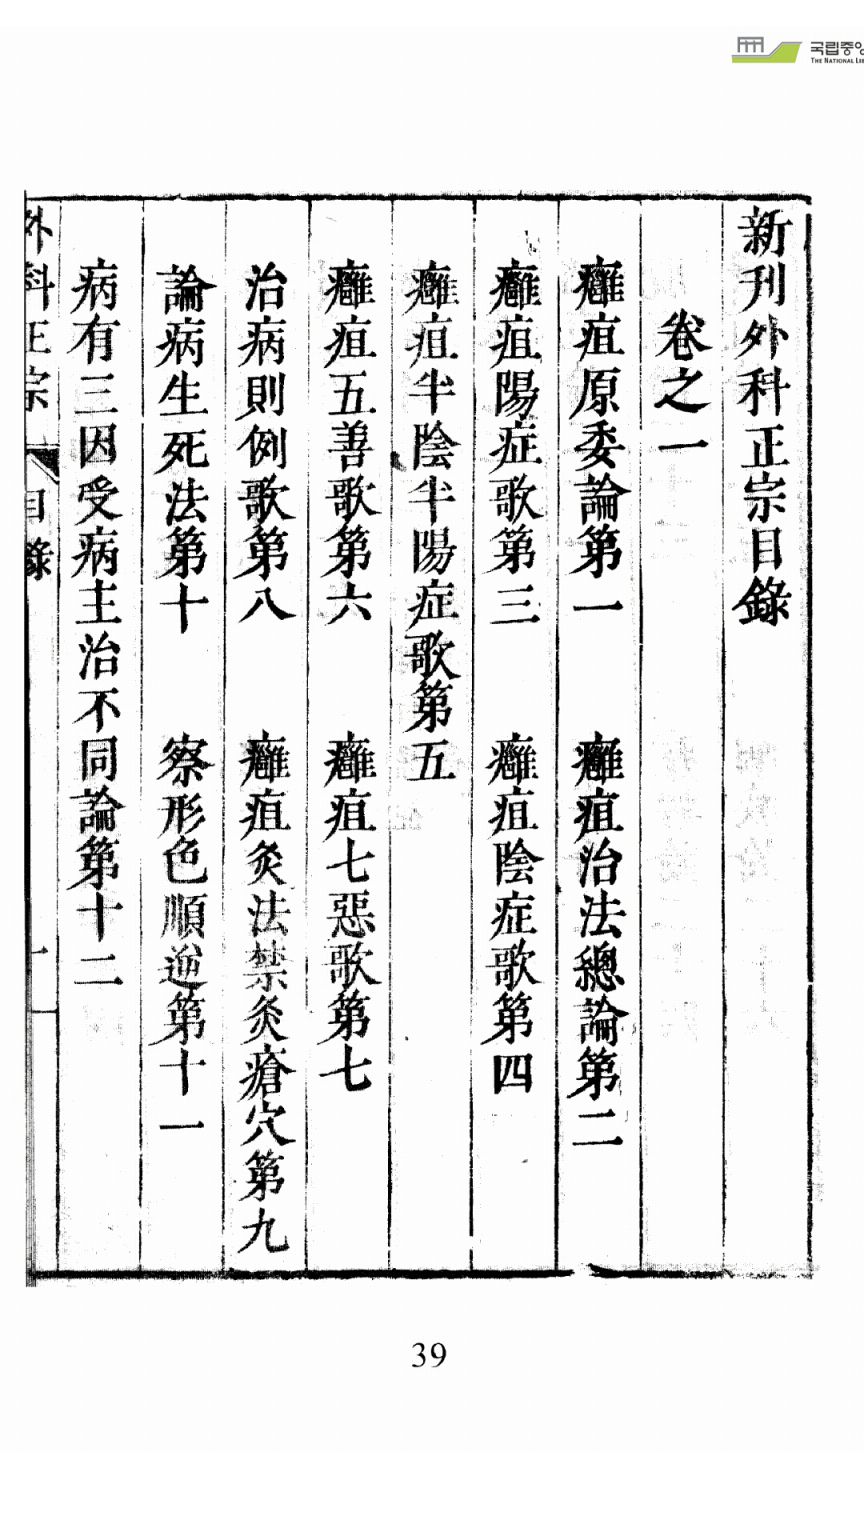 국립중앙
THE NATIONAL LIB
新刊外科正宗目錄
卷之一
癰疽原委論第一 癰疽治法總論第二
癰疽陽症歌第三 癰疽陰症歌第四
癰疽半陰半陽症歌第五
癰疽五善歌第六 癰疽七惡歌第七
治病則例歌第八 癰疽灸法禁灸瘡穴第九
論病生死法第十 察形色順逆第十一
病有三因受病主治不同論第十二
外科正宗 目錄 一
39